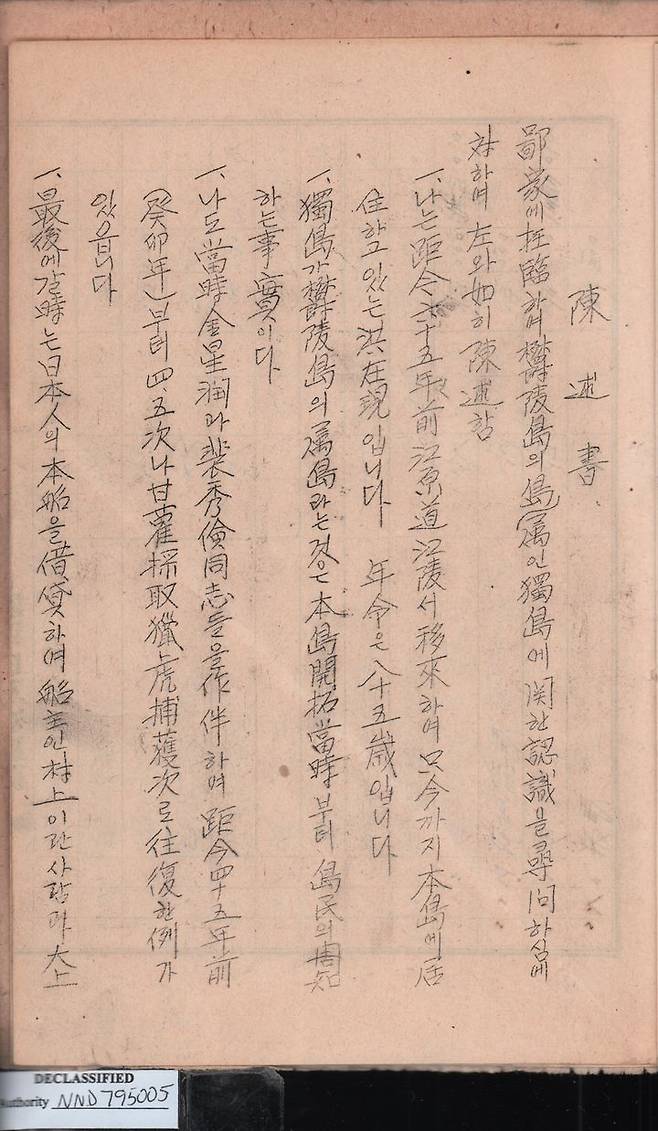 陳述書
鄙家에 枉臨하여 鬱陵島의 島(属인 獨島에 関한 認識을 尋問하심에
対하여 左와 如히 陳述함
一、나는 距今 六十五年前 江原道 江陵서 移來하여 只今까지 本島에 居
住하고 있는 洪在現입니다 年令은 八十五歲입니다
一、獨島가 鬱陵島의 属島라는 것은 本島開拓當時부터 島民의 周知
하는 事實이다
一、나도 當時 金星润과 裴秀儉 同志들을 作伴하여 距今 四十五年前
(癸卯年)부터 四五次나 甘藿採取 獵虎捕獲次로 往復한 例가
있읍니다
一、最後에 갈 時는 日本人의 本船을 借貸하여 船主인 村上이란 사람과 大上
DECLASSIFIED
Authority NND 795005